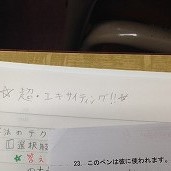 ☆超・エキサイティング!!☆
法のチカ
①選択肢
☆答え
23. このペンは彼に使われます。